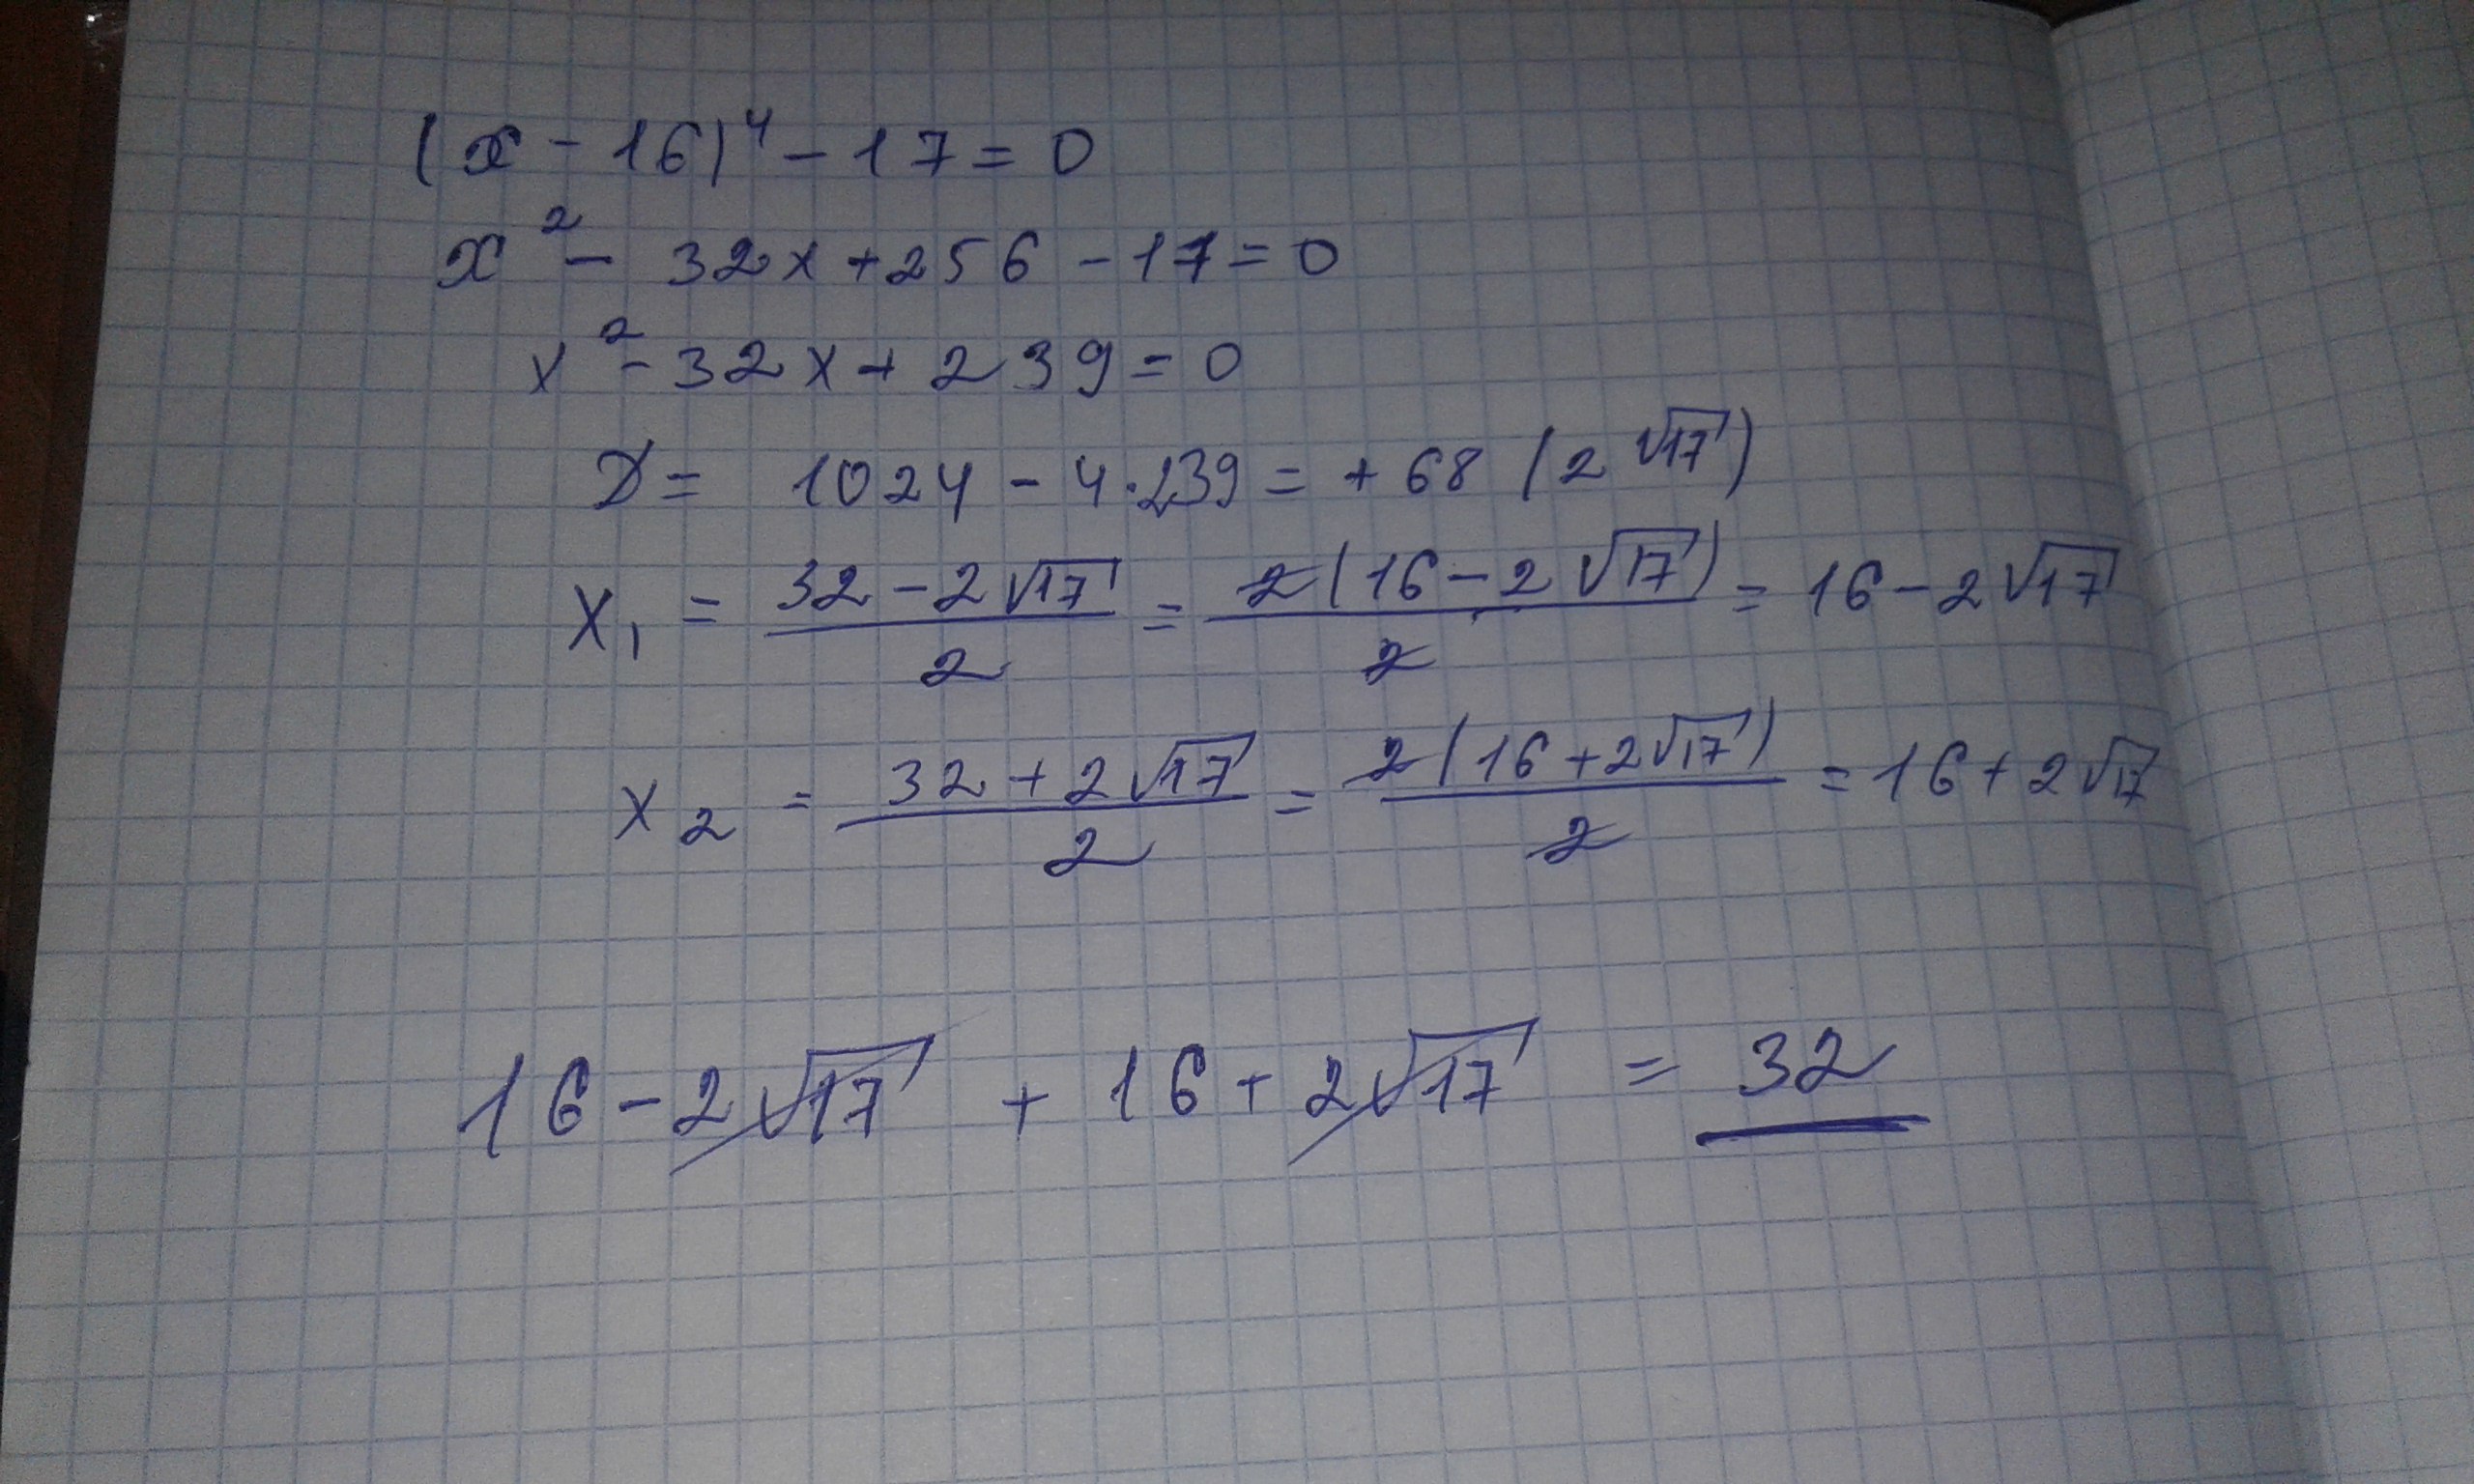 (x - 16)⁴ - 17 = 0
x² - 32x + 256 - 17 = 0
x² - 32x + 239 = 0
D = 1024 - 4·239 = + 68 (2√17)
x₁ = (32 - 2√17)/2 = 2(16 - 2√17)/2 = 16 - 2√17
x₂ = (32 + 2√17)/2 = 2(16 + 2√17)/2 = 16 + 2√17
16 - 2√17 + 16 + 2√17 = 32